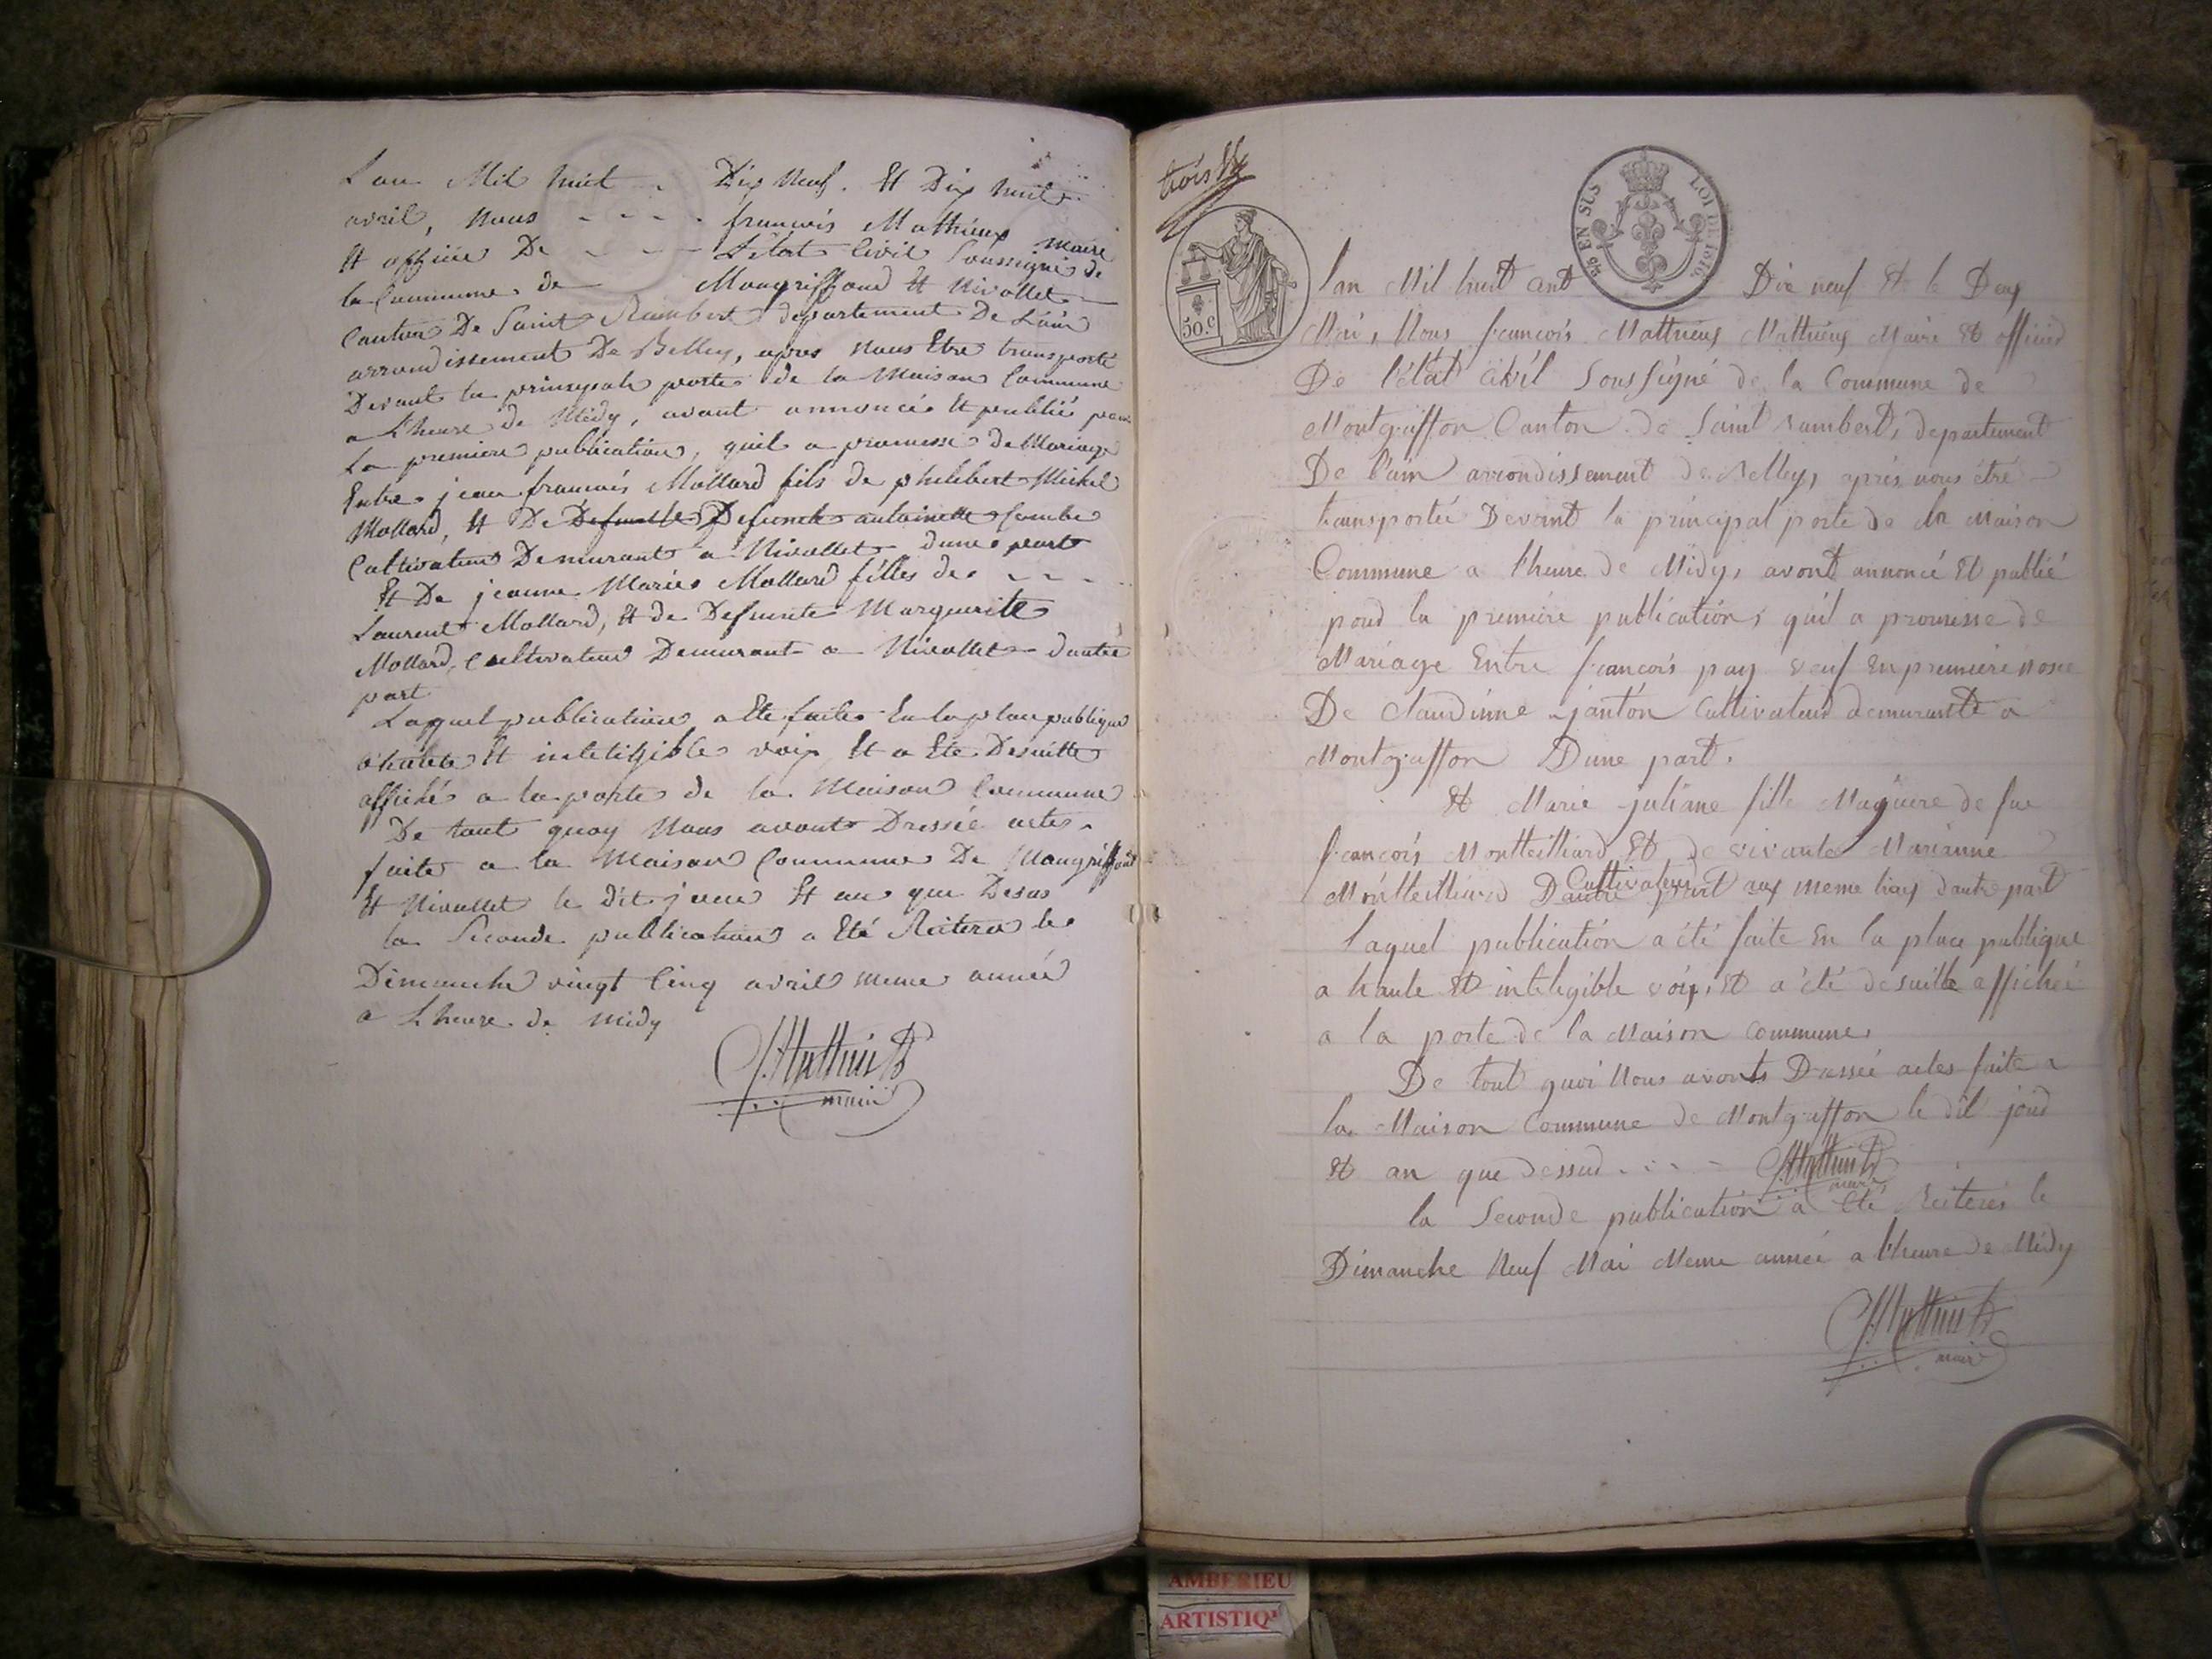 Lan Mil huit Dix Neuf. Et Dix huit
avril, Nous françois Mathieux maire
Et officier De L'état Civil Soussigné de
la Commune de Mongriffond Et Nivollet
Canton De Saint Rambert departement De L'ain
arrondissement De Belley, apres nous Etre transporté
Devant la principale porte de la Maison Commune
a L'heure de Midy, avont annoncé Et publié pour
La premiere publication, quil a promesse de Mariage
Entre jean françois Mollard fils de philibert Michel
Mollard, Et De Defunte antoinette Combe
Cultivateur Demurant a Nivollet dune part
Et De jeanne Marie Mollard filles de
Laurent Mollard, Et de Defunte Marguerite
Mollard, Cultivateur Demurant a Nivollet dautre
part
Laquel publication a Ete faite En la place publique
a haute Et inteligible voix Et a Eté Desuitte
affiché a la porte de la Maison Commune
De tout quoy Nous avont Dressée actes
faite a la Maison Commune De Mongriffond
Et Nivollet le Dit jour Et an que Desus
la Seconde publication a Eté Reitera le
Dimanche vingt Cinq avril meme année
a L'heure de midy
maire
trois
¼ EN SUS LOI DE 1816.
50.c
lan Mil huit Cent Dix neuf Et le Deux
Mai, Nous françois Mathieux Mathieux Maire Et officier
De l'état civil Soussigné de la Commune de
Montgriffon Canton de Saint rambert, departement
De l'ain arrondissement de Belley, après nous être
transportée Devant la principal porte de la Maison
Commune a l'heure de Midy, avont annoncé Et publié
pour la première publication, quil a promisse de
Mariage Entre françois pay veuf En premiere nose
De Claudinne janton Cultivateur demurante a
Montgriffon Dune part.
Et Marie juliane fille Mageure de fue
françois Montteilliard Et de vivante Marianne
Cultivateur
Montteilliard Dautre part aux meme lieux dautre part
laquel publication a été faite En la place publique
a haute Et inteligible voix, Et a été desuitte affichée
a la porte de la Maison Commune.
De tout quoi Nous avonts Dressée actes faite a
la Maison Commune de Montgriffon le dit jour
Et an que dessud
maire
la Seconde publication a Eté Reiterés le
Dimanche Neuf Mai Meme année a l'heure de Midy
maire
AMBERIEU
ARTISTIQ